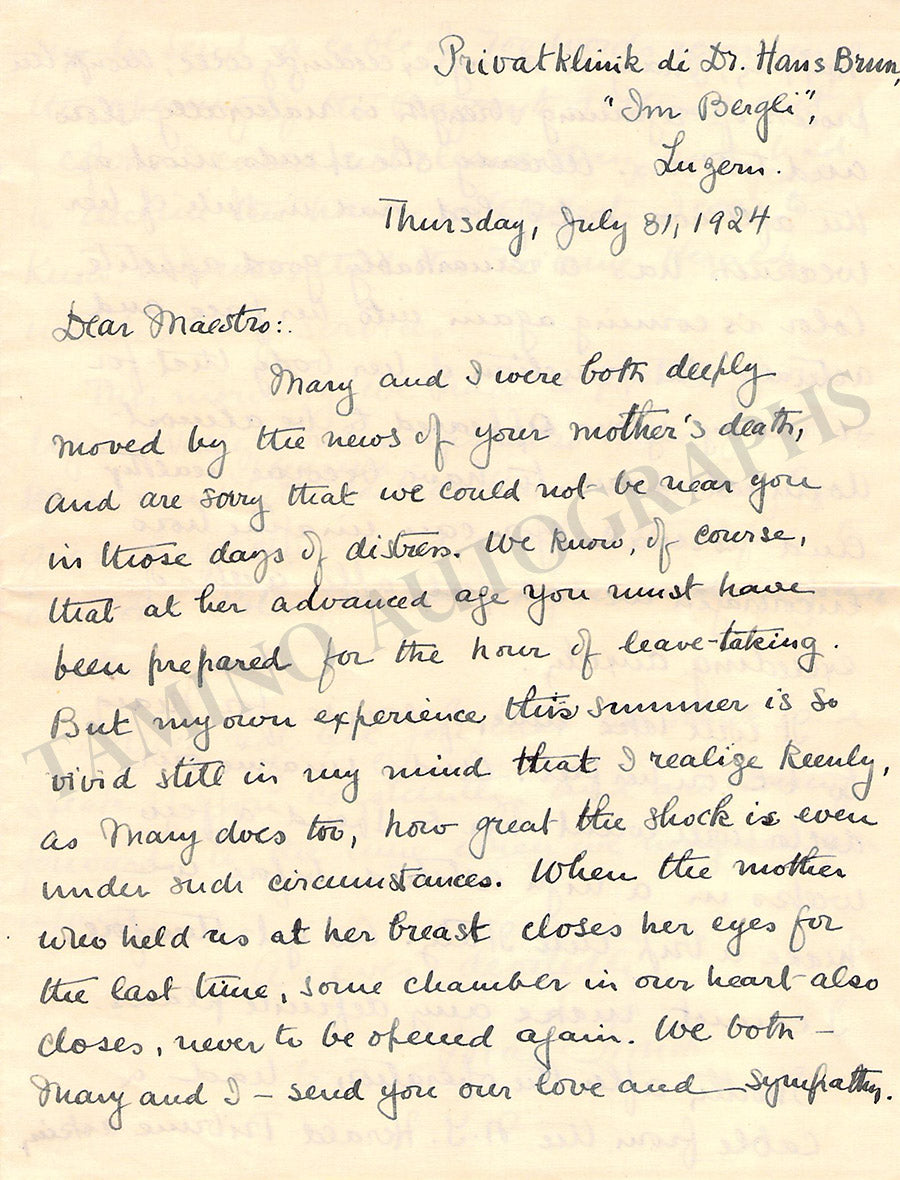 Privatklinik di Dr. Hans Brun,
"Im Bergli",
Luzern.
Thursday, July 31, 1924
Dear Maestro:.
Mary and I were both deeply
moved by the news of your mother's death,
and are sorry that we could not be near you
in those days of distress. We know, of course,
that at her advanced age you must have
been prepared for the hour of leave-taking.
But my own experience this summer is so
vivid still in my mind that I realize keenly,
as Mary does too, how great the shock is even
under such circumstances. When the mother
who held us at her breast closes her eyes for
the last time, some chamber in our heart also
closes, never to be opened again. We both –
Mary and I – send you our love and sympathy.
TAMINO AUTOGRAPHS